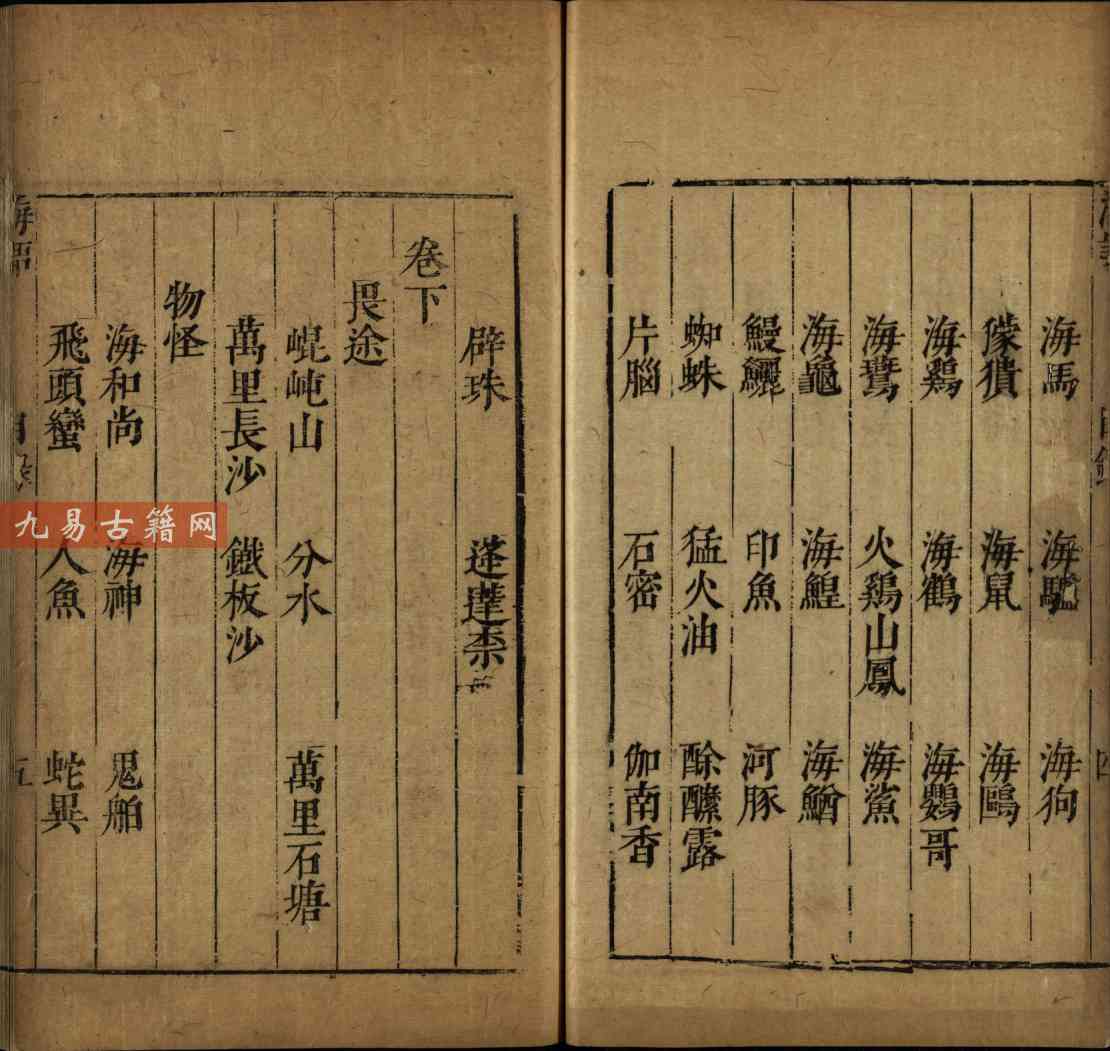 海馬 海驢 海狗
獴獚 海鼠 海鷗
海鷄 海鶴 海鸚哥
海鷺 火鷄山鳳 海鯊
海龜 海鰉 海鰌
鰻鱺 印魚 河豚
蜘蛛 猛火油 酴醿露
片腦 石密 伽南香
辟珠 蓬蓬柰
卷下
畏途
崐屯山 分水 萬里石塘
萬里長沙 鐵板沙
物怪
海和尚 海神 鬼舶
飛頭蠻 人魚 蛇異
五
九易古籍网